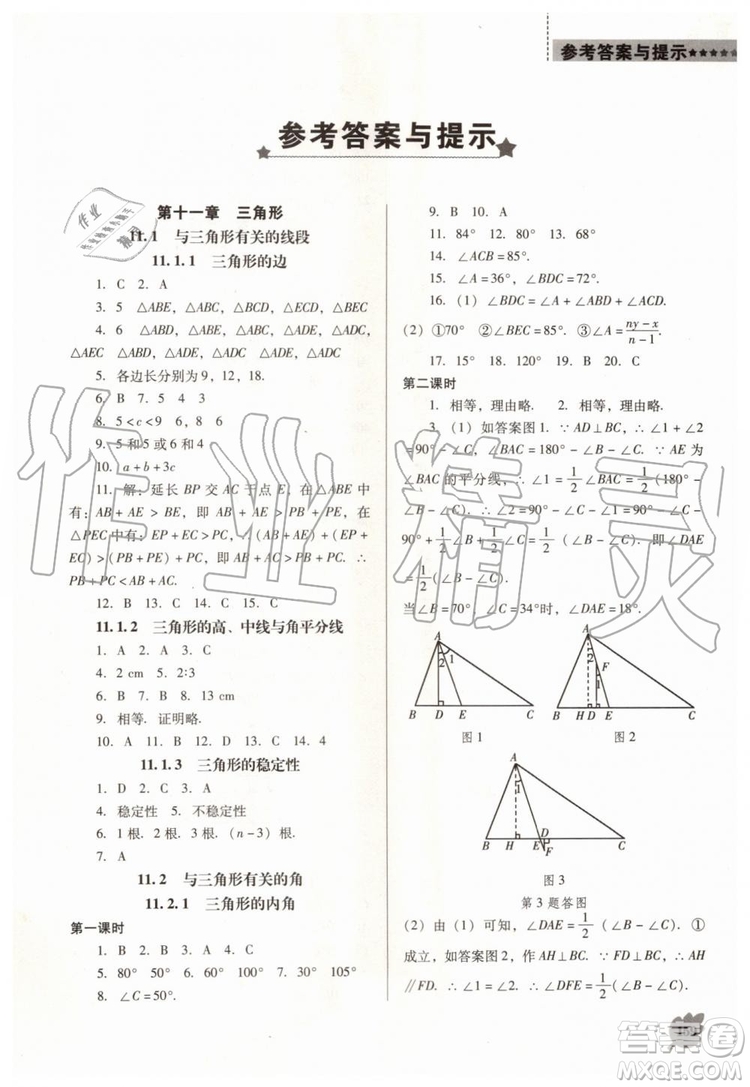 参考答案与提示★★★★★
参考答案与提示
第十一章 三角形
11.1 与三角形有关的线段
11.1.1 三角形的边
1. C 2. A
3. 5 △ABE, △ABC, △BCD, △ECD, △BEC
4. 6 △ABE, △ABD, △ABC, △ADE, △ADC,
△AEC △ABD, △ADE, △ADC
5. 各边长分别为9, 12, 18.
6. B 7. 5 4 3
8. 5<c<9 6, 8 6
9. 5和5或4和6
10. a+b+3c
11. 解: 延长BP交AC于点E, 在△ABE中
有: AB+AE>BE, 即AB+AE>PB+PE, 在
△PEC中有: EP+EC>PC, ∴(AB+AE)+(EP+
EC)>(PB+PE)+PC, 即AB+AC>PB+PC. ∴
PB+PC<AB+AC.
12. B 13. C 14. A 15. C
11.1.2 三角形的高、中线与角平分线
1. A 2. A 3. C
4. 2 cm 5. 2∶3
6. B 7. B 8. 10 cm
9. 相等. 证明略.
10. A 11. B 12. D 13. C 14. 4
11.1.3 三角形的稳定性
1. D 2. C 3. C
4. 稳定性 5. 不稳定性
6. 1根. 2根. 3根. (n-3)根.
7. A
11.2 与三角形有关的角
11.2.1 三角形的内角
第一课时
1. B 2. B 3. A 4. C
5. 80° 50° 6. 60° 7. 30° 105°
8. ∠C=50°.
9. B 10. A
11. 84° 12. 80° 13. 68°
14. ∠ACB=85°.
15. ∠A=36°, ∠BDC=72°.
16. (1) ∠BDC=∠A+∠ABD+∠ACD.
(2) ①70° ②∠BEC=85°. ③∠A=(ny-x)/(n-1).
17. 15° 18. 120° 19. B 20. C
第二课时
1. 相等, 理由略. 2. 相等, 理由略.
3. (1) 如答案图1. ∵AD⊥BC, ∴∠1+∠2
=90°-∠C, ∠BAC=180°-∠B-∠C. ∵AE为
∠BAC的平分线, ∴∠1=1/2∠BAC=1/2(180°-
∠B-∠C). ∴∠2=90°-∠C-∠1=90°-∠C-
90°+1/2∠B+1/2∠C=1/2(∠B-∠C). 即∠DAE
=1/2(∠B-∠C).
当∠B=70°, ∠C=34°时, ∠DAE=18°.
A 1 2 B D E C
图1
A 2 F 1 B H D E C
图2
A 1 B H E D F C
图3
第3题答图
(2) 由(1)可知, ∠DAE=1/2(∠B-∠C). ①
成立, 如答案图2, 作AH⊥BC. ∵FD⊥BC, ∴AH
∥FD. ∴∠1=∠2, ∴∠DFE=1/2(∠B-∠C).
作业精灵
答案圈
MXQE.COM